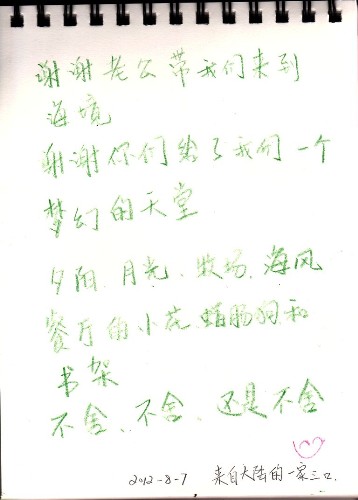 谢谢老公带我们来到
海境
谢谢你们给了我们一个
梦幻的天堂
夕阳、月光、牧场、海风
餐厅的小花、腊肠狗和
书架
不舍、不舍、还是不舍
2012-8-7 来自大陆的一家三口.